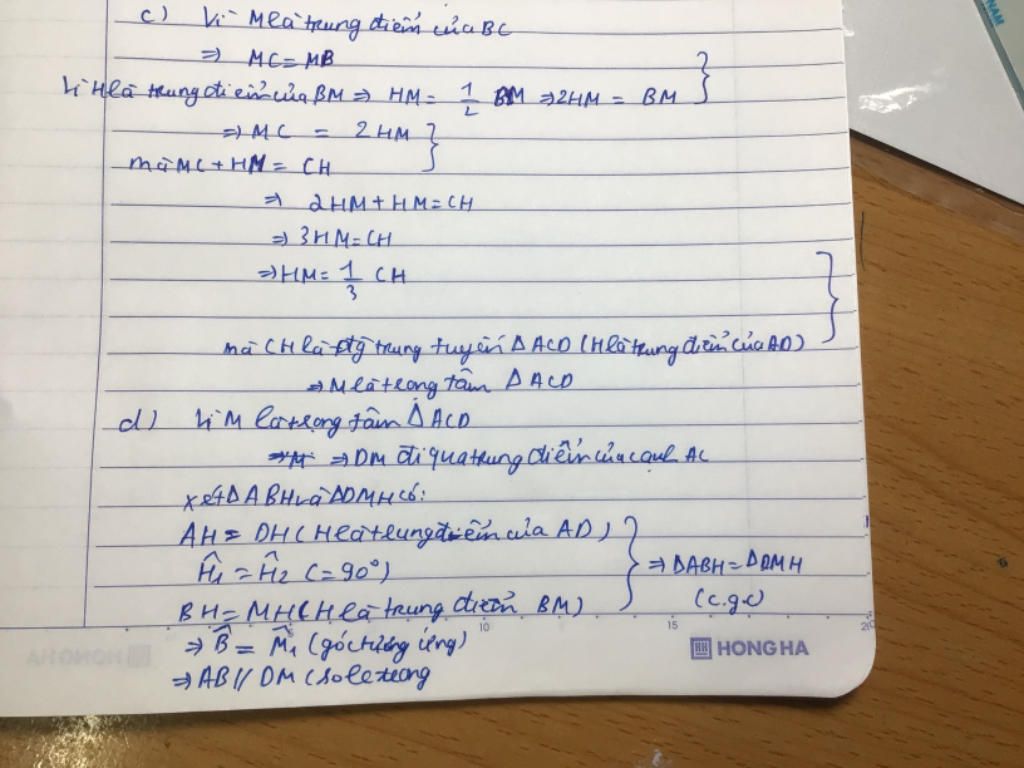 c) Vì M là trung điểm của BC
⇒ MC = MB
Vì H là trung điểm của BM ⇒ HM = 1/2 BM ⇒ 2HM = BM
⇒ MC = 2HM
mà MC + HM = CH
⇒ 2HM + HM = CH
⇒ 3HM = CH
⇒ HM = 1/3 CH
mà CH là đg trung tuyến Δ ACD (H là trung điểm của AD)
⇒ M là trọng tâm Δ ACD
d) Vì M là trọng tâm Δ ACD
⇒ M ⇒ DM đi qua trung điểm của cạnh AC
Xét Δ ABH và Δ DMH có:
AH = DH (H là trung điểm của AD)
Ĥ1 = Ĥ2 (= 90°)
⇒ ΔABH = ΔDMH
BH = MH (H là trung điểm BM)
(c.g.c)
10 15 20
⇒ B̂ = M̂1 (góc tương ứng)
HH HONG HA
⇒ AB // DM (so le trong
HONG HA
NAM